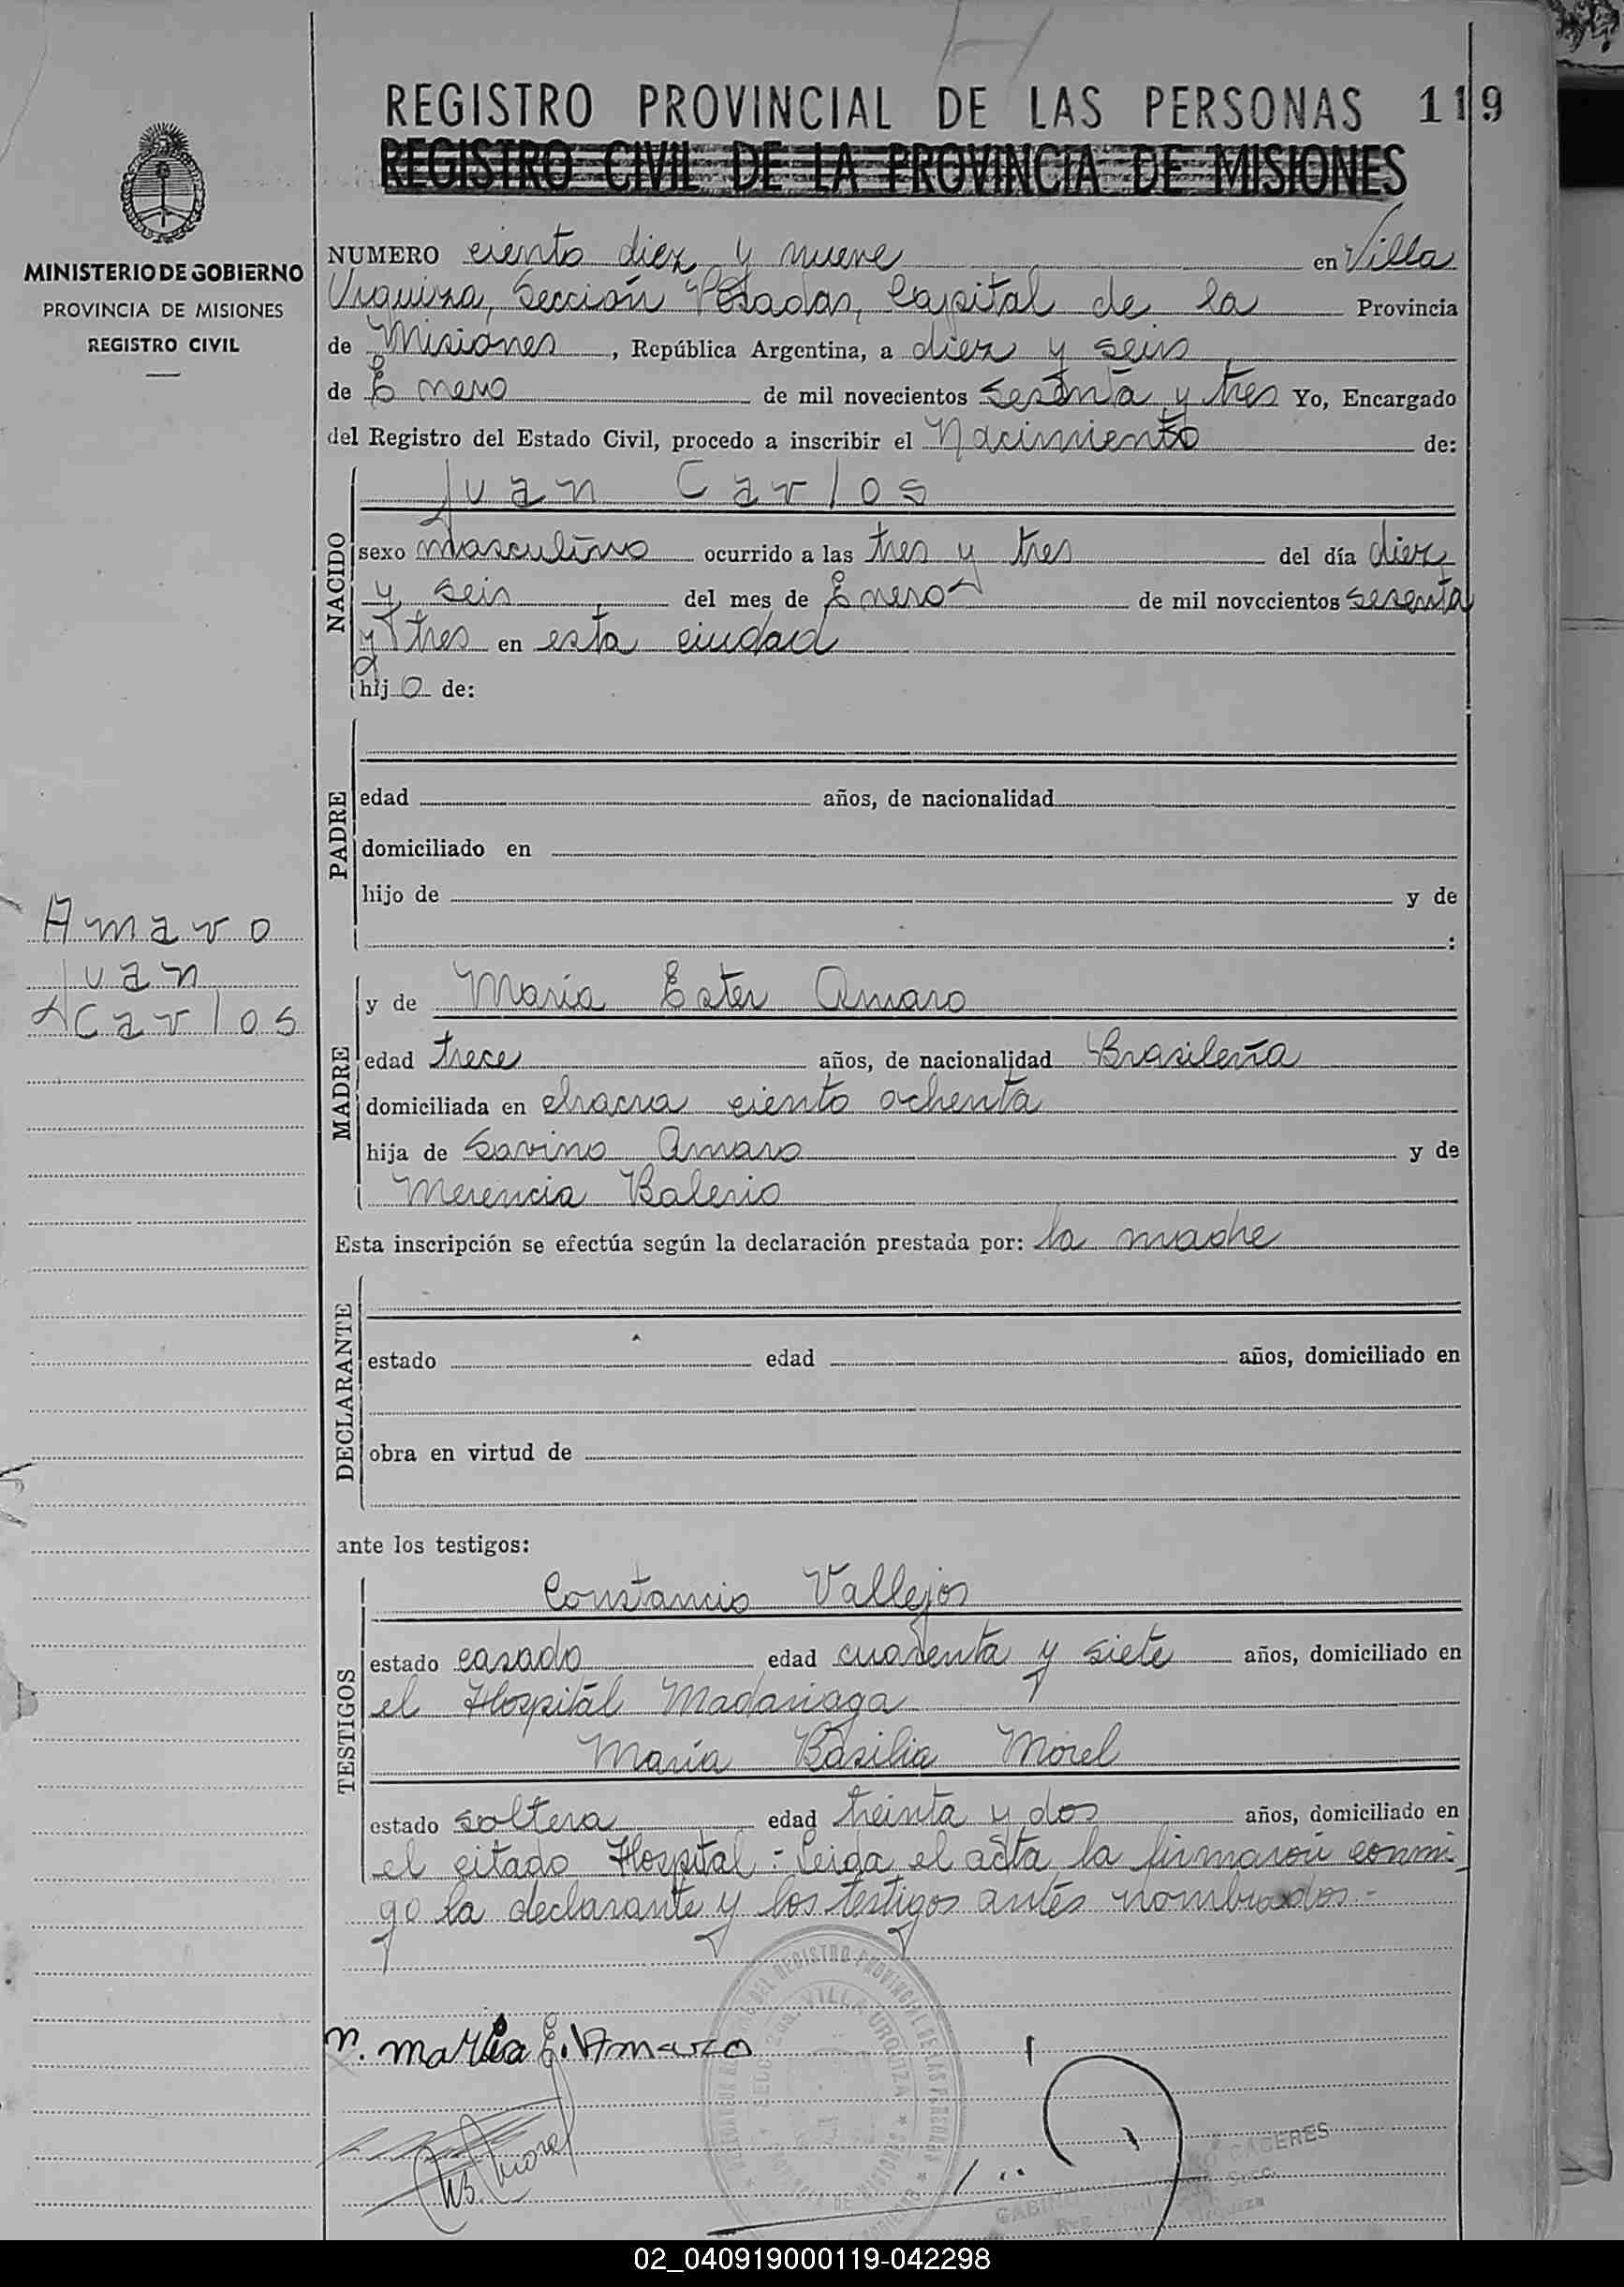 REGISTRO PROVINCIAL DE LAS PERSONAS 119
REGISTRO CIVIL DE LA PROVINCIA DE MISIONES
MINISTERIO DE GOBIERNO
PROVINCIA DE MISIONES
REGISTRO CIVIL
NUMERO ciento diez y nueve en Villa
Urquiza, Sección Posadas, Capital de la Provincia
de Misiones, República Argentina, a diez y seis
de Enero de mil novecientos sesenta y tres Yo, Encargado
del Registro del Estado Civil, procedo a inscribir el Nacimiento de:
NACIDO
Juan Carlos
sexo masculino ocurrido a las tres y tres del día diez
y seis del mes de Enero de mil novecientos sesenta
y tres en esta ciudad
hijo de:
PADRE
edad años, de nacionalidad
domiciliado en
hijo de y de
:
Amaro
Juan
Carlos
MADRE
y de María Ester Amaro
edad trece años, de nacionalidad Brasileña
domiciliada en chacra ciento ochenta
hija de Savino Amaro y de
Merencia Balerio
Esta inscripción se efectúa según la declaración prestada por: la madre
DECLARANTE
estado edad años, domiciliado en
obra en virtud de
ante los testigos:
TESTIGOS
Constancio Vallejos
estado casado edad cuarenta y siete años, domiciliado en
el Hospital Madariaga
María Basilia Morel
estado soltera edad treinta y dos años, domiciliado en
el citado Hospital.- Leida el acta, la firmaron conmi
go la declarante y los testigos antes nombrados.-
María E. Amaro
B. Morel
VILLA URQUIZA
CACERES
02_040919000119-042298